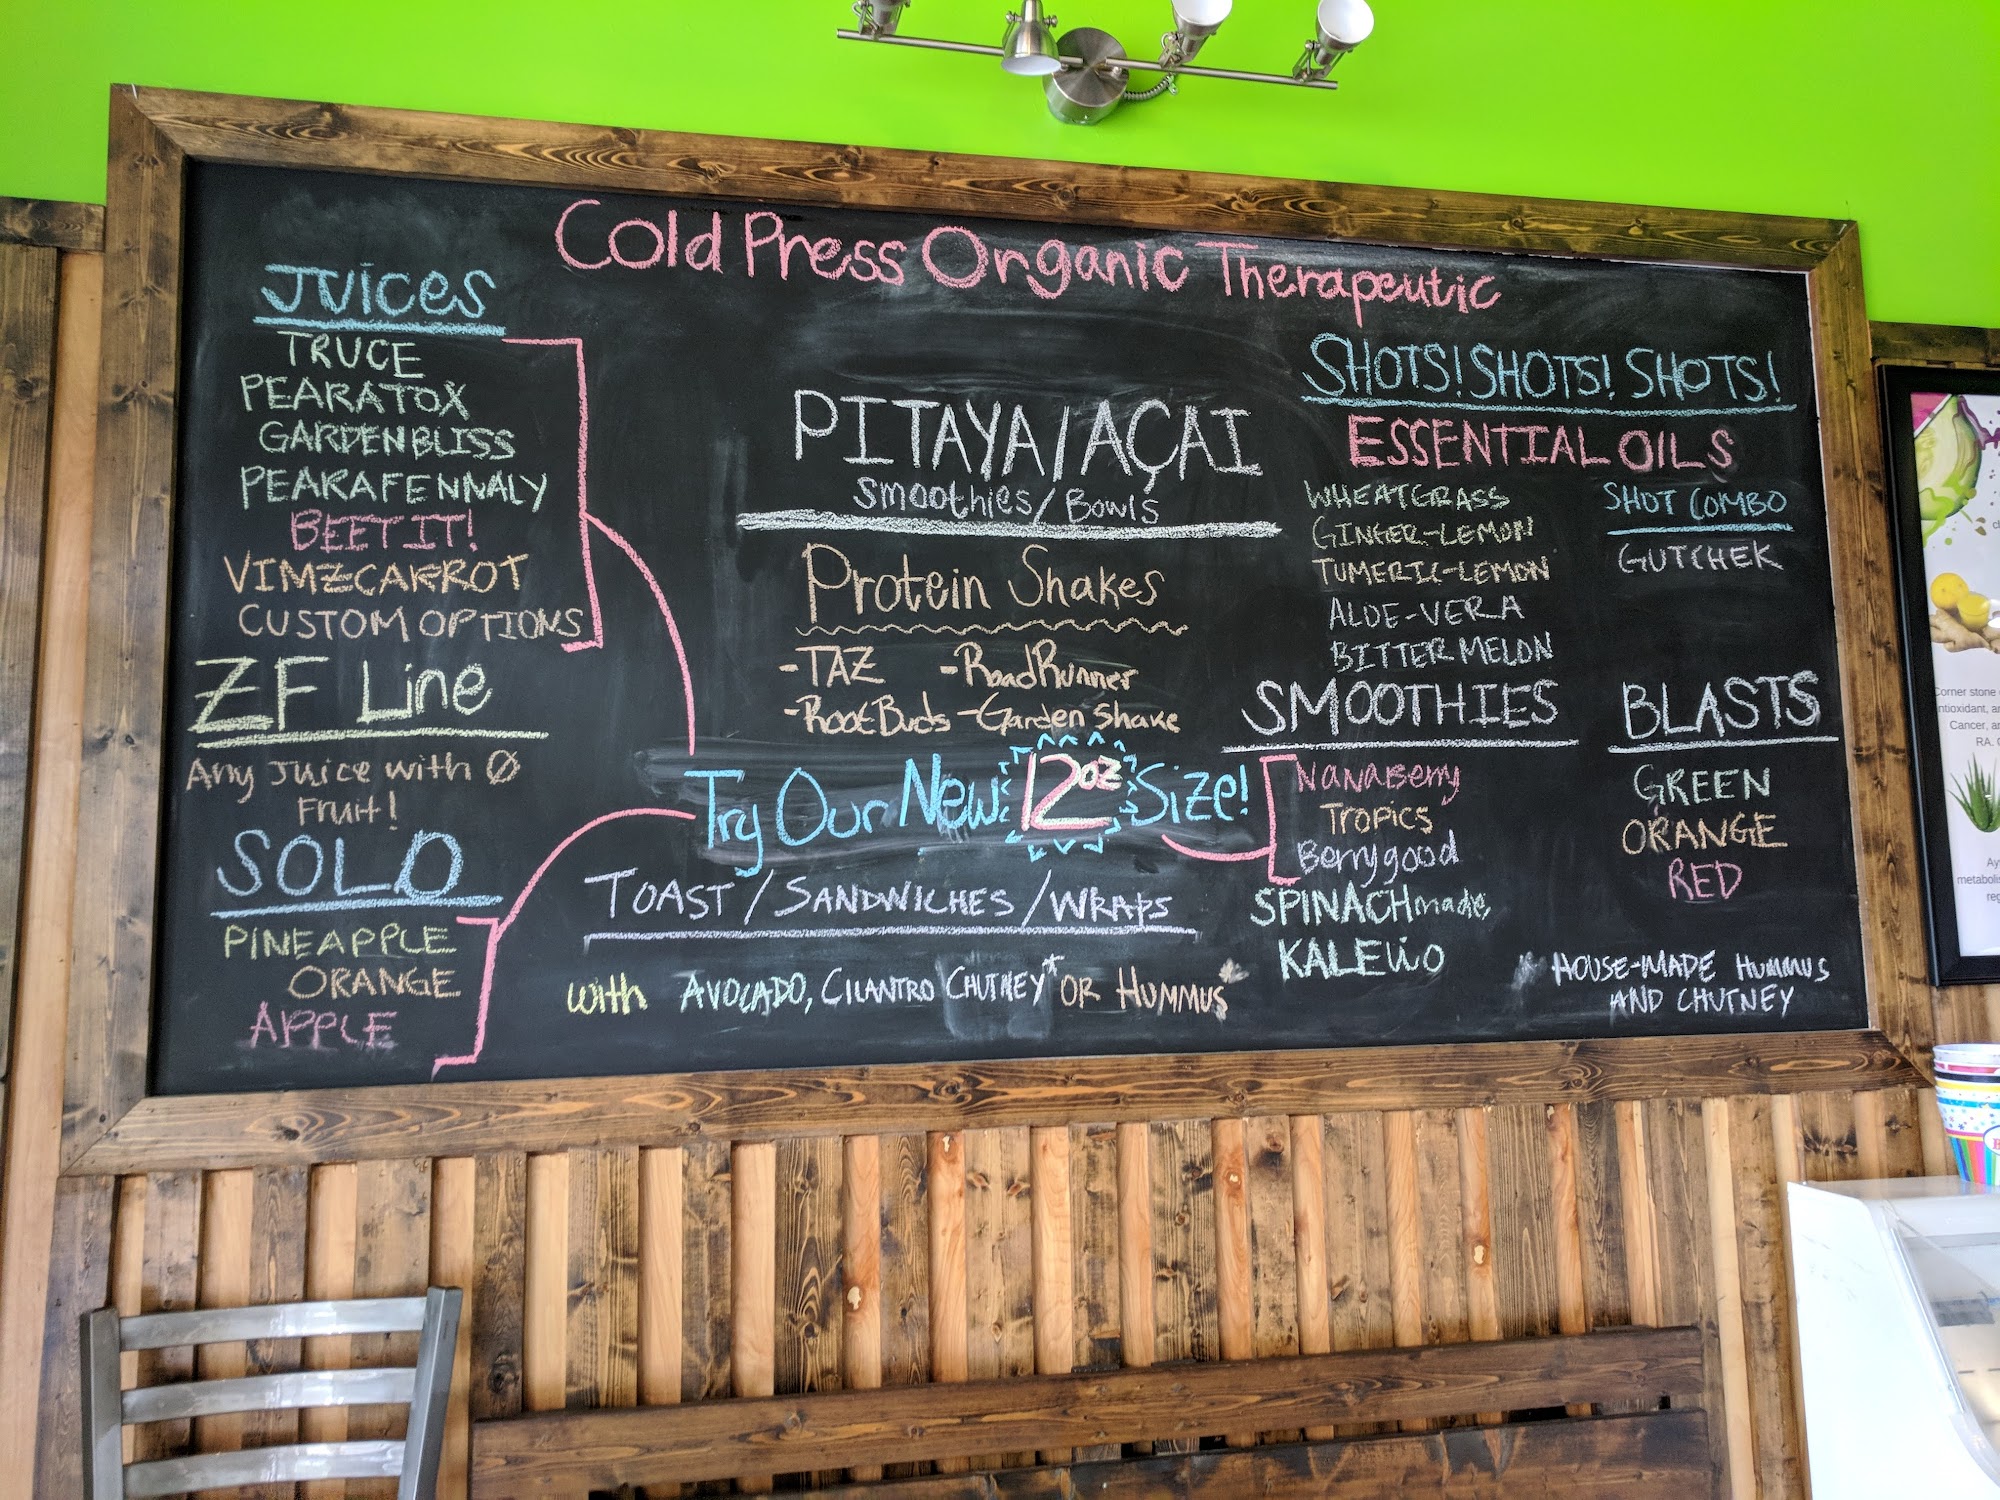 Cold Press Organic Therapeutic
JUICES
TRUCE
PEARATOX
GARDENBLISS
PEARAFENNALY
BEET IT!
VIMZCARROT
CUSTOM OPTIONS
ZF Line
Any Juice with Ø
Fruit!
SOLO
PINEAPPLE
ORANGE
APPLE
PITAYA/AÇAI
Smoothies/Bowls
Protein Shakes
-TAZ -RoadRunner
-RootBuds -Garden Shake
Try Our New 12oz Size!
TOAST/SANDWICHES/WRAPS
with AVOCADO, CILANTRO CHUTNEY* OR HUMMUS*
SHOTS! SHOTS! SHOTS!
ESSENTIAL OILS
WHEATGRASS
GINGER-LEMON
TUMERIC-LEMON
ALOE-VERA
BITTER MELON
SHOT COMBO
GUTCHEK
SMOOTHIES
NANABERRY
Tropics
Berrygood
SPINACHmade,
KALEiio
BLASTS
GREEN
ORANGE
RED
* HOUSE-MADE HUMMUS
AND CHUTNEY
Corner stone
antioxidant, an
Cancer, an
RA.
Ay
metabolis
reg